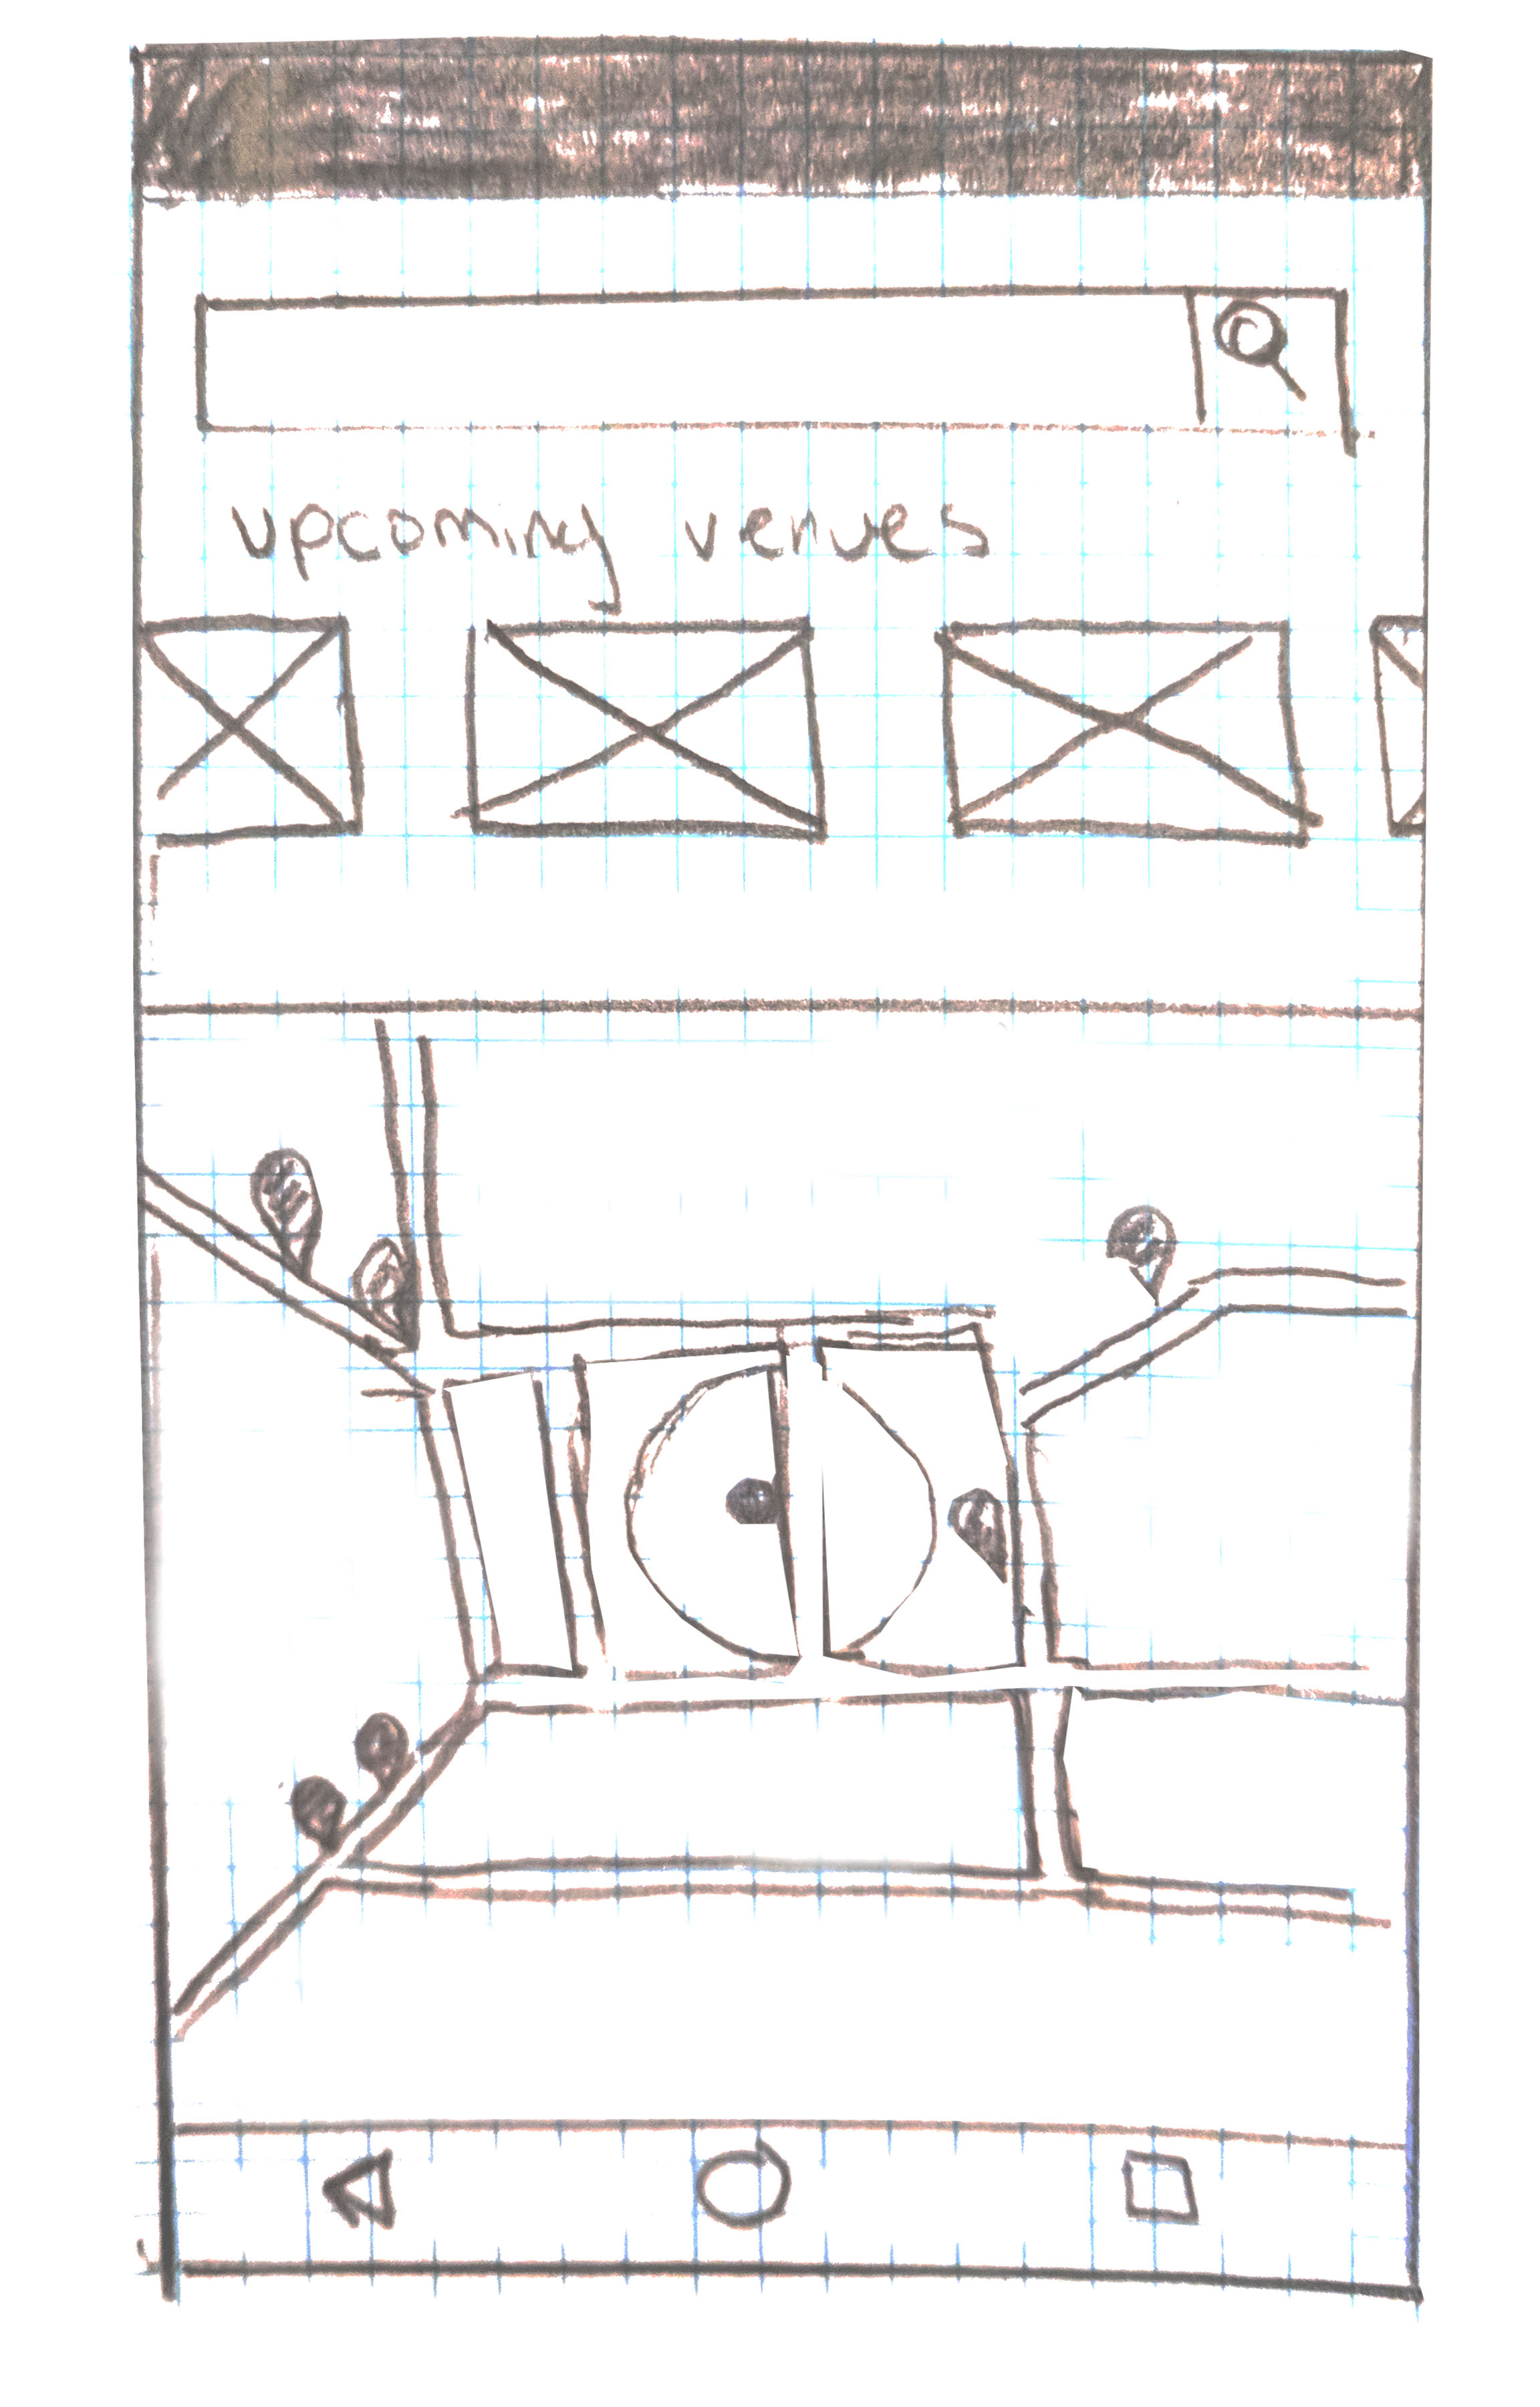 upcoming venues